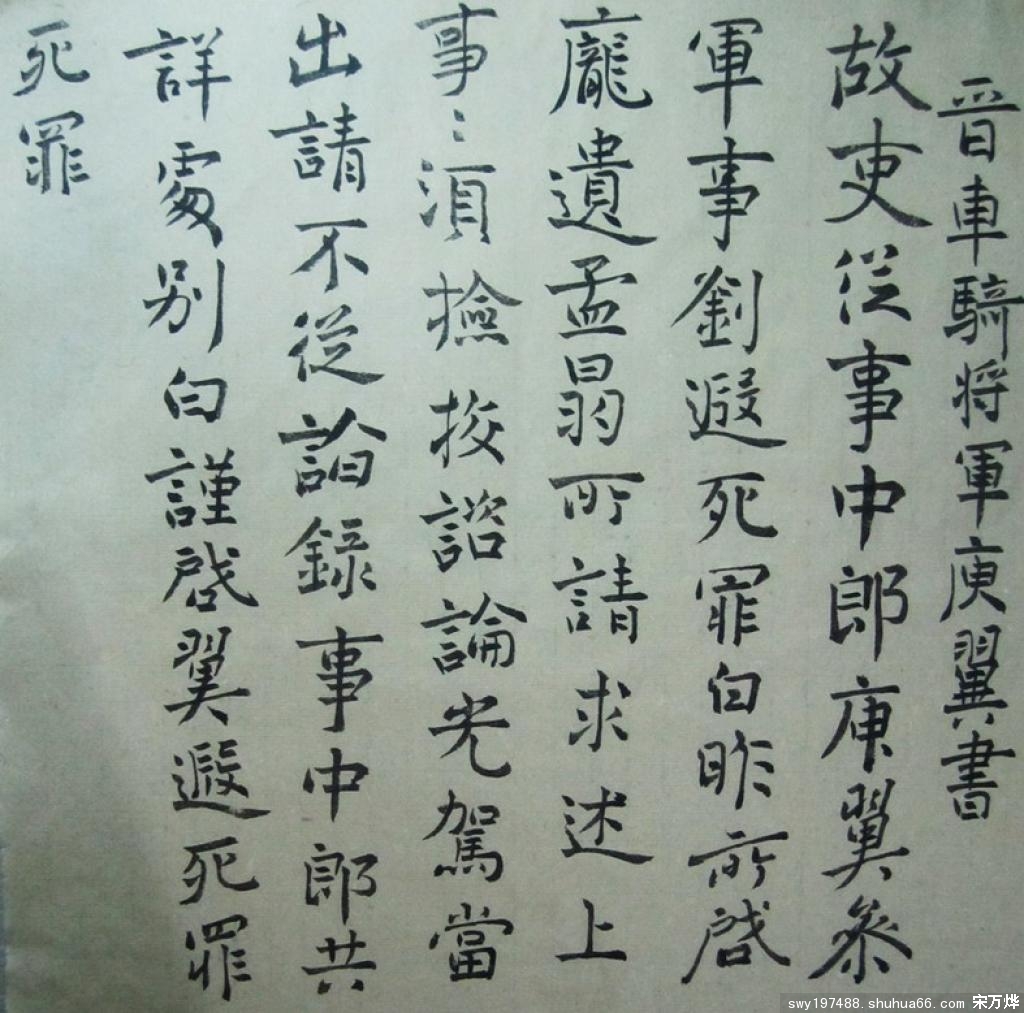 晋車騎将軍庾翼書
故吏従事中郎庾翼参
軍事劉遐死罪白昨所啓
龐遺孟昺所請求述上
事〻湏撿挍諮論光駕當
出請不從論録事中郎共
詳䖏别白謹啓翼遐死罪
死罪
swy197488.shuhua66.com 宋万烨